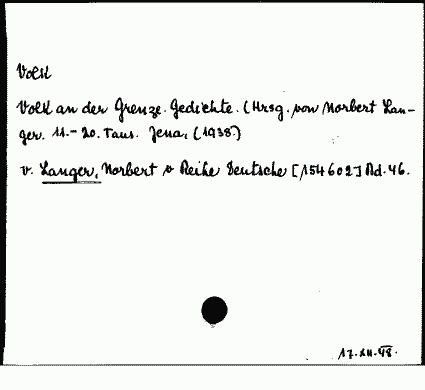 Volk
Volk an der Grenze. Gedichte. (Hrsg. von Norbert Lan-
ger. 11.-20. Taus. Jena, (1938.)
v. Langer, Norbert v Reihe Deutsche [154602] Bd. 46.
17.XII.48.